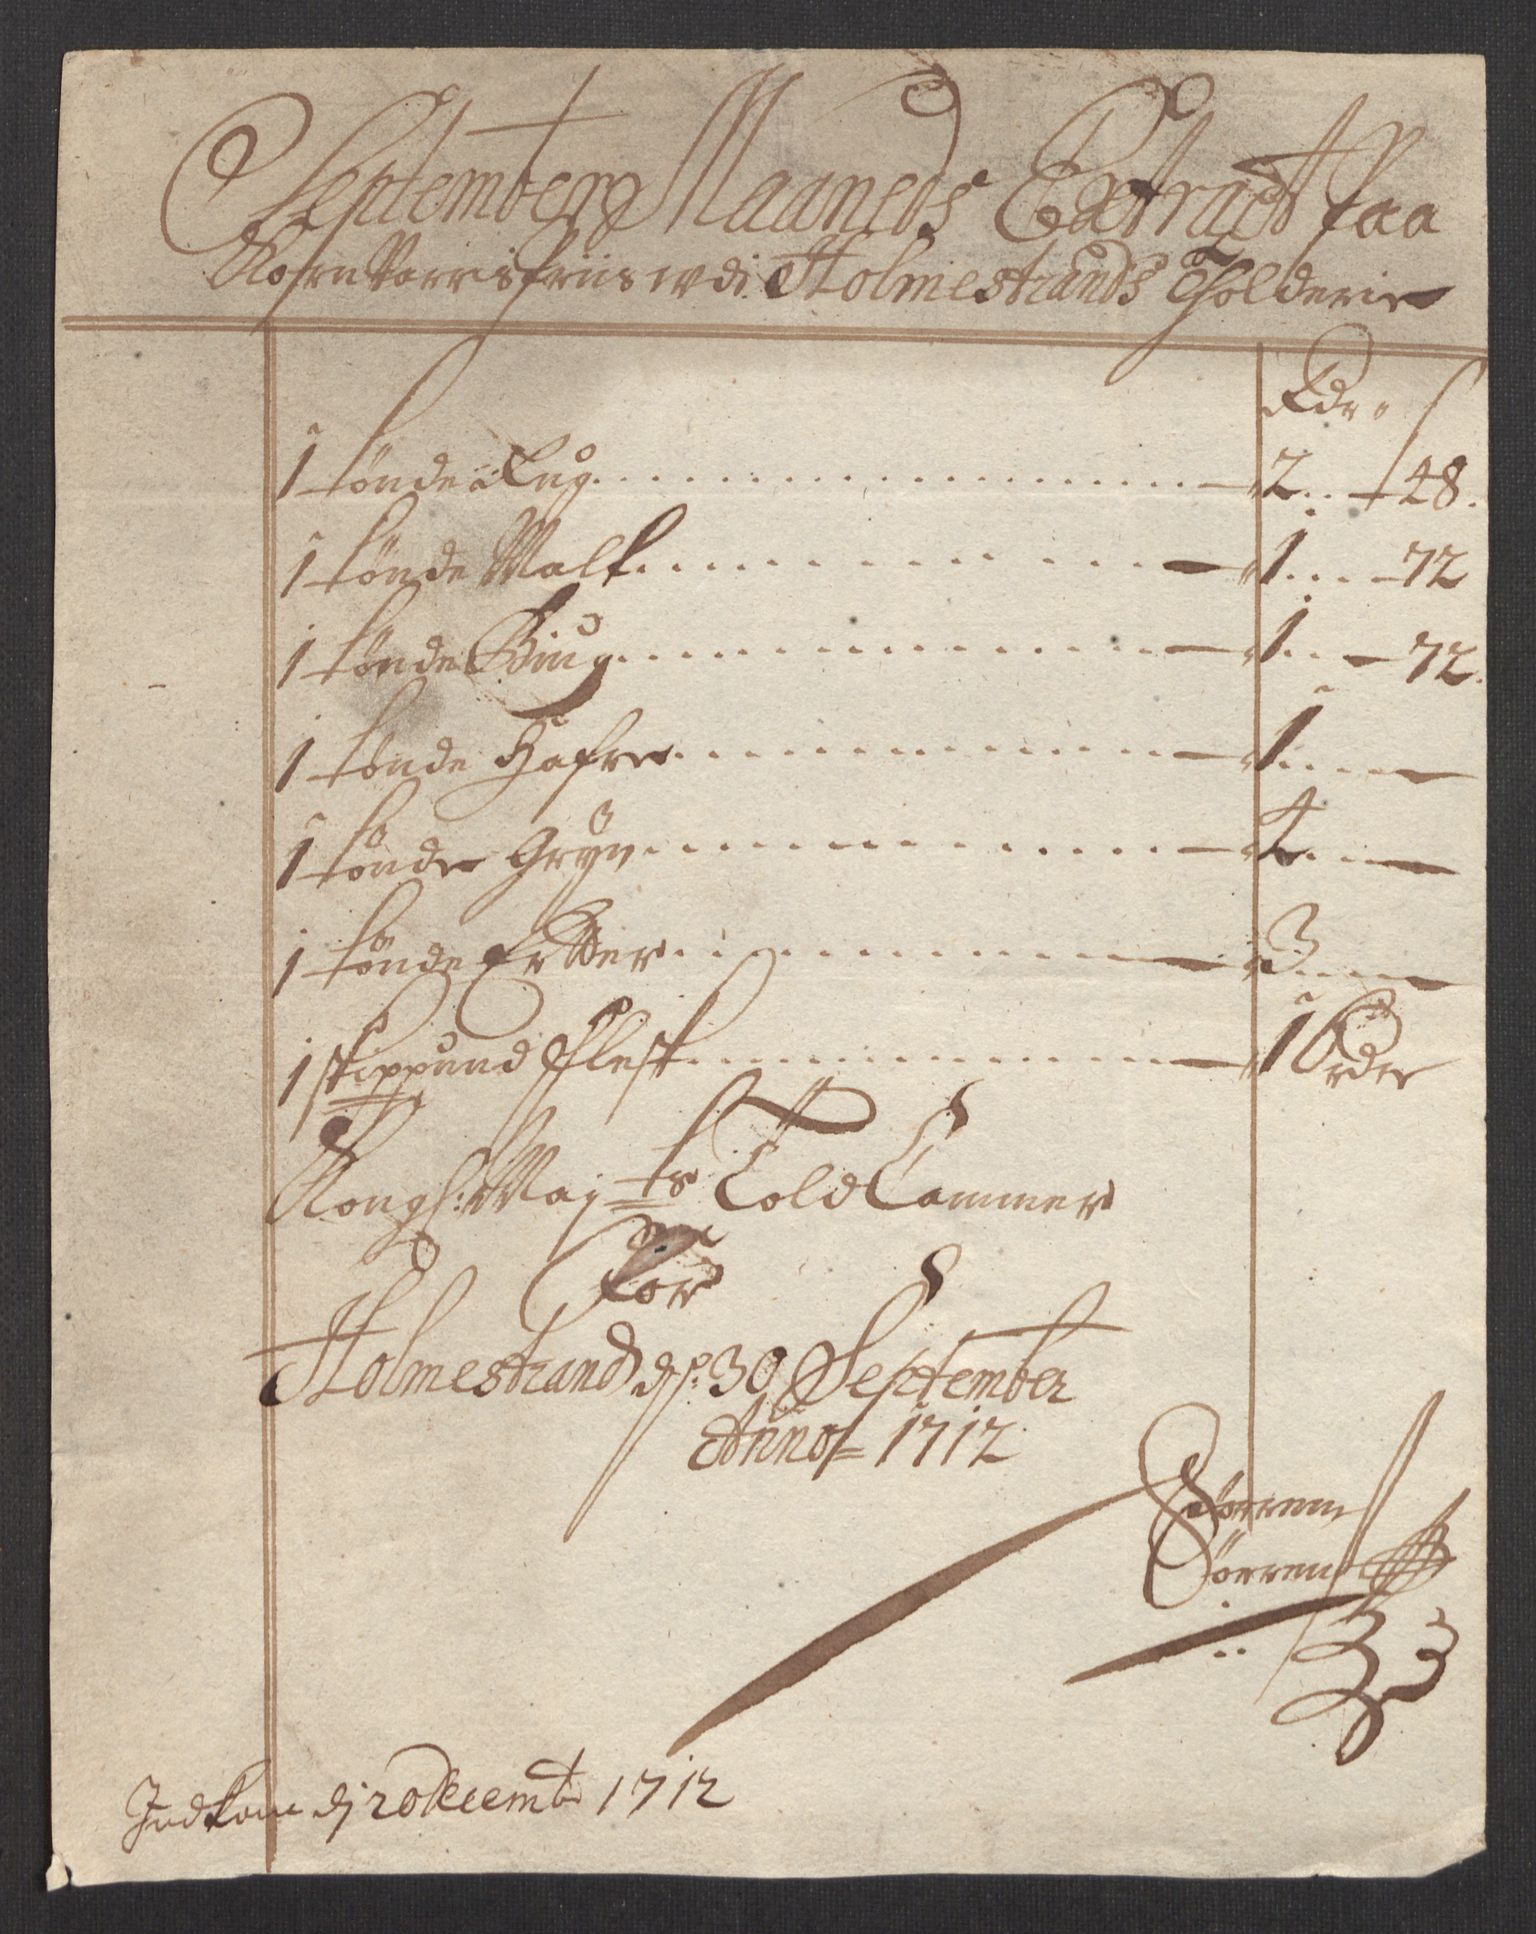 Septembers Maaneds Extract paa
Korn Varris priis wdi Holmestrands Tholderie
Rdr ß
1 tønde Rug 2 48
1 tønde Malt 1 72
1 tønde Biug 1 72
1 tønde Hafre 1
1 tønde Gryn 4
1 tønde Ertter 3
1 skippund Flesk 1 Rdr
Kongl: Maj ts Told Cammer
For
Holmestrand d: 30 September
Anno 1712
Sørren
Indkom dj 20 Decemb 1712